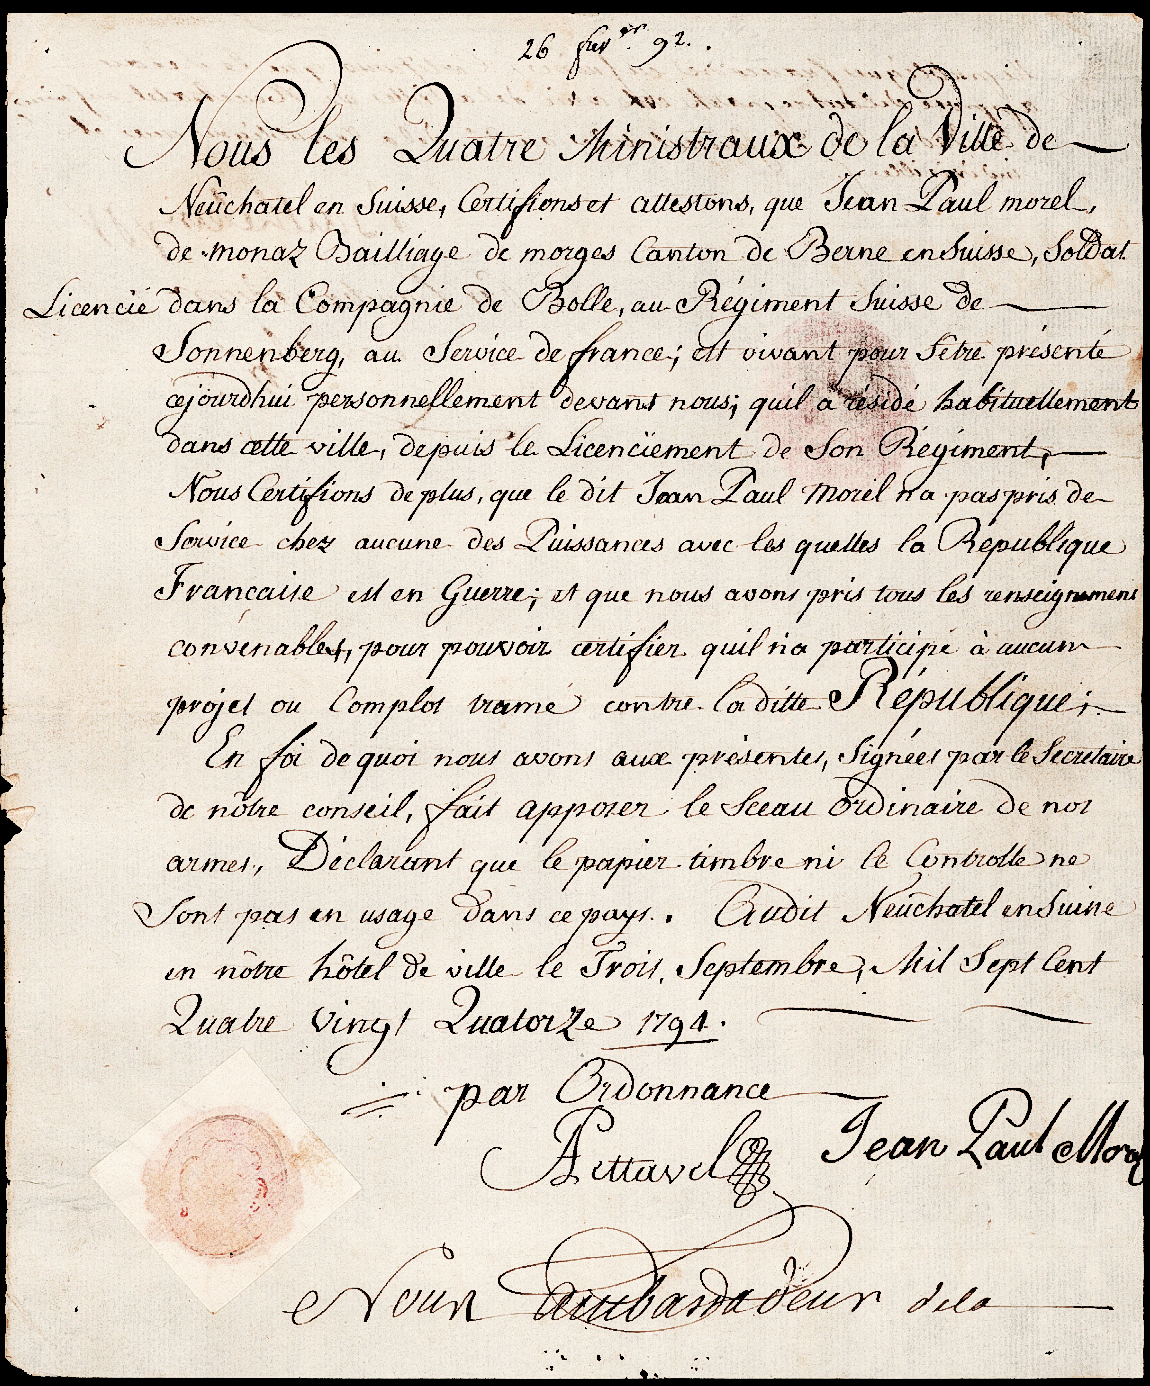 26 fevr er 92.
Nous les Quatre Ministraux de la Ville de
Neûchatel en Suisse, Certifions et attestons, que Jean Paul morel,
de monaz Bailliage de morges Canton de Berne en Suisse, Soldat
Licencié dans la Compagnie de Bolle, au Régiment Suisse de
Sonnenberg, au Service de france; est vivant pour s'etre présenté
cejourdhui personnellement devant nous; quil a résidé habituellement
dans cette ville, depuis le Licenciement de Son Régiment,
Nous Certifions de plus, que le dit Jean Paul Morel n'a pas pris de
Service chez aucune des Puissances avec les quelles la République
Française est en Guerre; et que nous avons pris tous les renseignemens
convenables, pour pouvoir certifier quil n'a participé à aucun
projet ou Complot tramé contre la ditte République;
En foi de quoi nous avons aux présentes, Signées par le Secretaire
de nôtre conseil, fait apposer le Sceau Ordinaire de nos
armes, Déclarant que le papier timbre ni le Controlle ne
Sont pas en usage dans ce pays. Audit Neûchatel en Suisse
en nôtre hôtel de ville le Trois, Septembre, Mil Sept Cent
Quatre Vingt Quatorze 1794.
par Ordonnance
Pettavel Jean Paul Morel
Nous ambassadeur de la